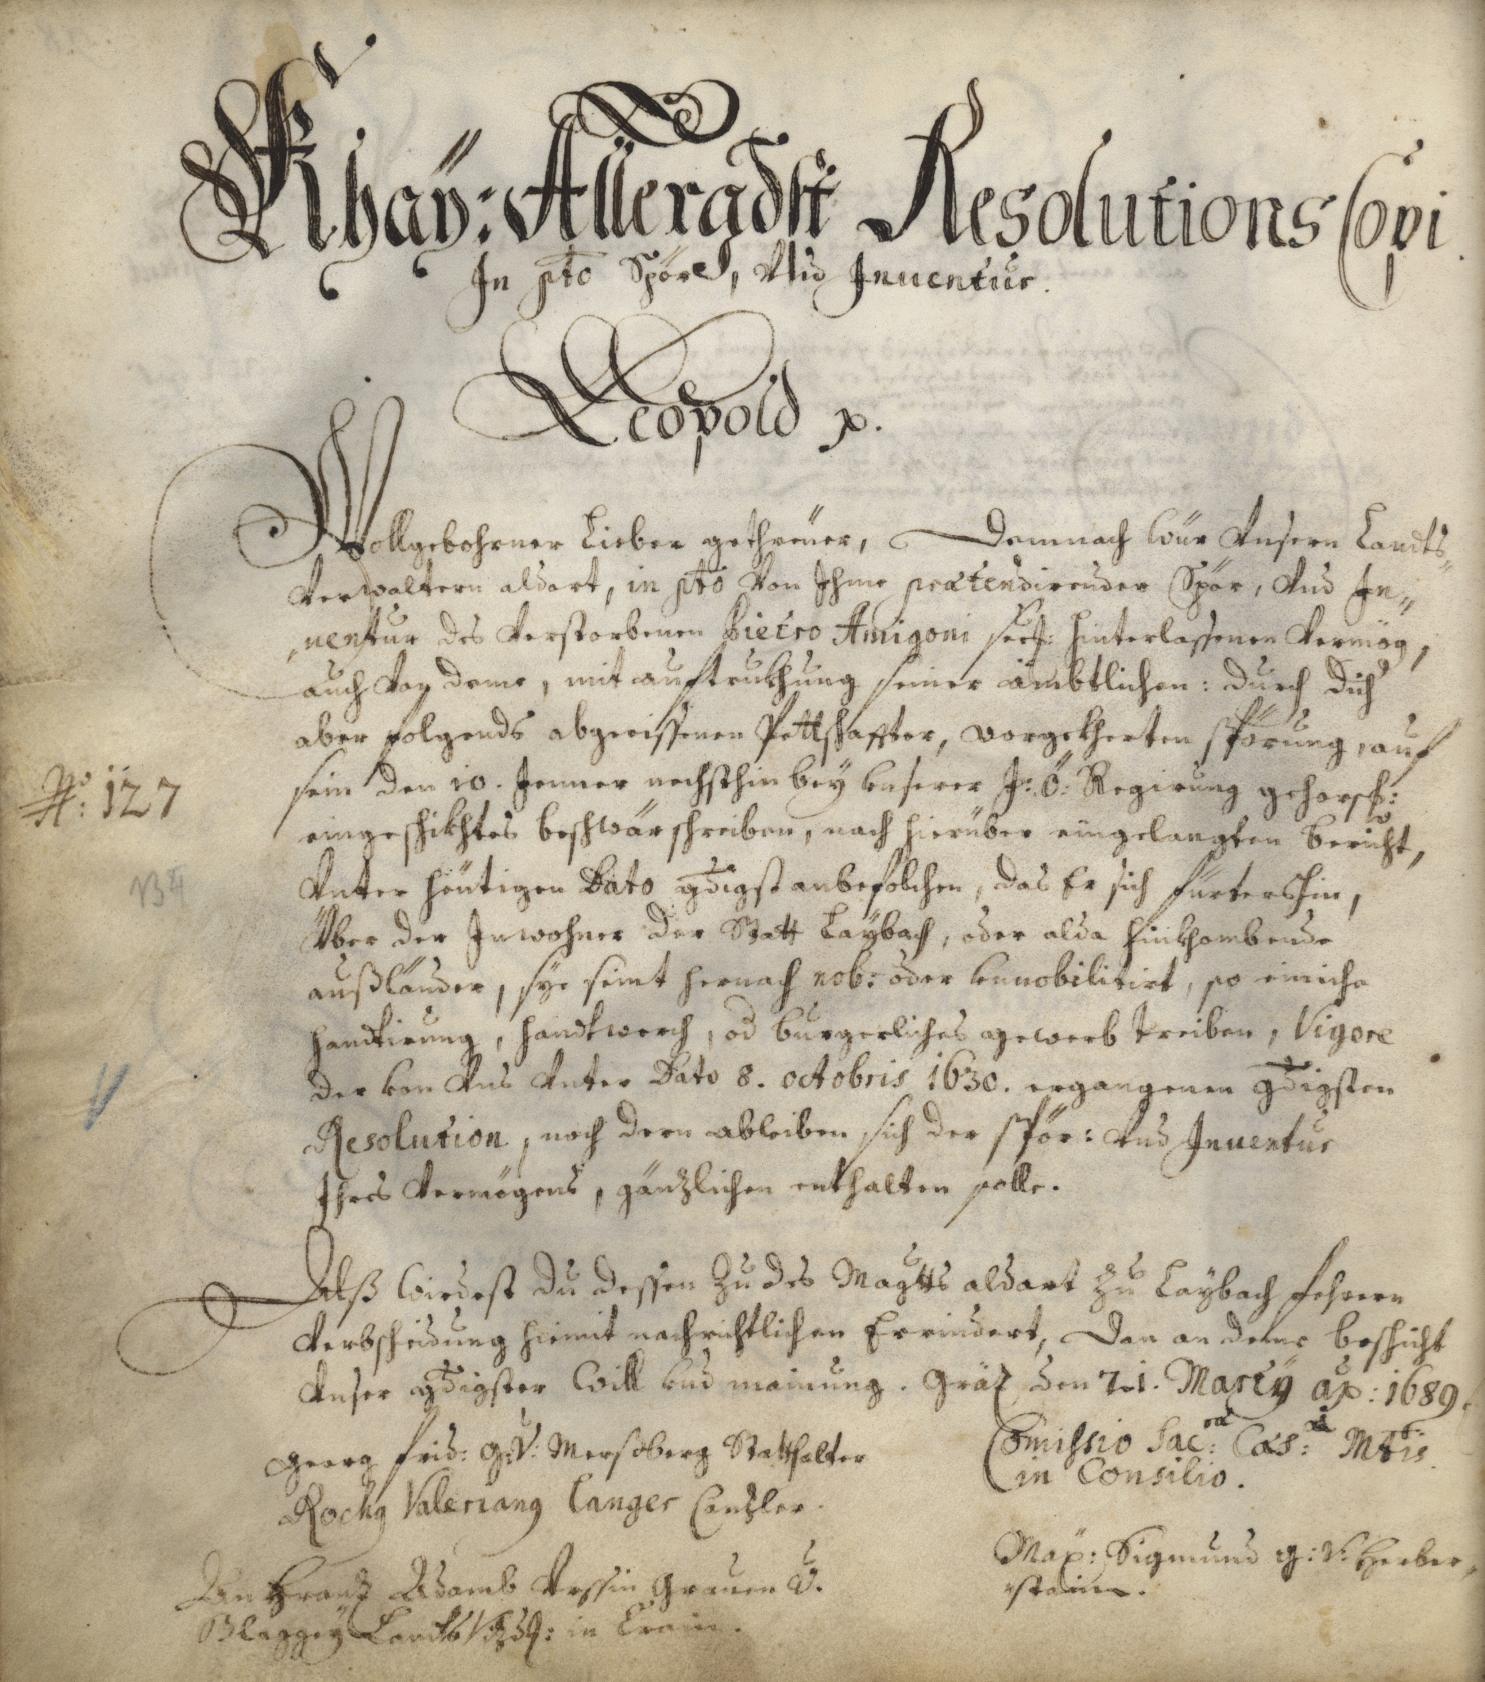 Khaÿ: Allergdst Resolutions Copi
In pto Spör, Und Inuentur.
Leopold p.
Wollgebohrner Lieber gethreüer, Demnach Wür Unsern Landts
Verwaltern aldort, in pto Von Ihme prætendirender Spör, Und In„
„nentur des Verstorbenen Pietro Amigoni seel: hinterlassenen Vermög,
auch Von deme, mit auftrukhung seiner ämbtlichen: durch dich
aber folgends abgerissenen Pettschaffter, vorgekherten spörung, auf
sein den 10. Jenner nechsthin beÿ unserer I: Ö: Regirung gehorsb:
No: 127
eingeschikhtes beschwärschreiben, nach hierüber eingelangten bericht,
Unter heütigen Dato gdigst anbefolchen, das Er sich fürtershin,
Über der Inwohner der Statt Laÿbach, oder alda hinkhombende
außländer, sÿe seint hernach nob: oder unnobilitirt, so einiche
handtirung, handtwerch, od burgerliches gewerb treiben, Vigore
der von Uns Unter Dato 8. octobris 1630. ergangenen gdigsten
Resolution, noch dern ableiben sich der spör: und Inuentur
Ihres Vermögens, gänzlichen enthalten solle.
Alß Wirdest du dessen zu des Magtts aldort zu Laÿbach fehrern
Verbscheidung hiemit nachrichtlichen Errindert, Dan an deme beschicht
Unser gdigster Will und mainung. Gräz den 21. Martÿ ao: 1689.
Georg frid: G: V: Mersperg Statthalter
Comissio Sac: Cæs: Mtis
in Consilio.
Rochg Valeriang Langer Canzler.
Max: Sigmund g: V: Herber„
„stain.
An Franz Adamb Urssin Grauen V.
Blaggeÿ Landts in Crain.